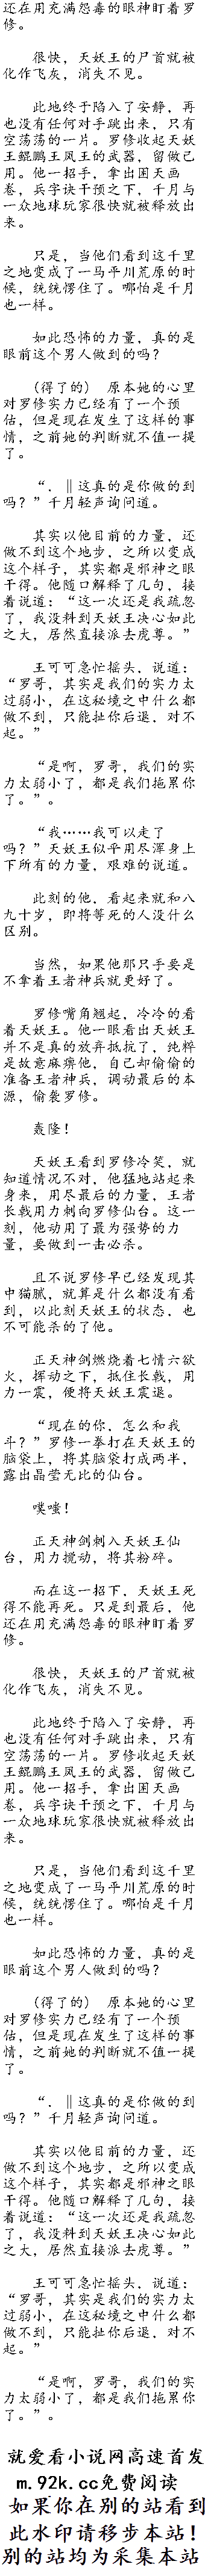 还在用充满怨毒的眼神盯着罗
修。
很快，天妖王的尸首就被
化作飞灰，消失不见。
此地终于陷入了安静，再
也没有任何对手跳出来，只有
空荡荡的一片。罗修收起天妖
王鲲鹏王凤王的武器，留做己
用。他一招手，拿出困天画
卷，兵字诀干预之下，千月与
一众地球玩家很快就被释放出
来。
只是，当他们看到这千里
之地变成了一马平川荒原的时
候，统统愣住了。哪怕是千月
也一样。
如此恐怖的力量，真的是
眼前这个男人做到的吗？
（得了的） 原本她的心里
对罗修实力已经有了一个预
估，但是现在发生了这样的事
情，之前她的判断就不值一提
了。
“．‖这真的是你做的到
吗？”千月轻声询问道。
其实以他目前的力量，还
做不到这个地步，之所以变成
这个样子，其实都是邪神之眼
干得。他随口解释了几句，接
着说道：“这一次还是我疏忽
了，我没料到天妖王决心如此
之大，居然直接派去虎尊。”
王可可急忙摇头，说道：
“罗哥，其实是我们的实力太
过弱小，在这秘境之中什么都
做不到，只能扯你后退，对不
起。”
“是啊，罗哥，我们的实
力太弱小了，都是我们拖累你
了。”。
“我……我可以走了
吗？”天妖王似乎用尽浑身上
下所有的力量，艰难的说道。
此刻的他，看起来就和八
九十岁，即将等死的人没什么
区别。
当然，如果他那只手要是
不拿着王者神兵就更好了。
罗修嘴角翘起，冷冷的看
着天妖王。他一眼看出天妖王
并不是真的放弃抵抗了，纯粹
是故意麻痹他，自己却偷偷的
准备王者神兵，调动最后的本
源，偷袭罗修。
轰隆！
天妖王看到罗修冷笑，就
知道情况不对，他猛地站起来
身来，用尽最后的力量，王者
长戟用力刺向罗修仙台。这一
刻，他动用了最为强势的力
量，要做到一击必杀。
且不说罗修早已经发现其
中猫腻，就算是什么都没有看
到，以此刻天妖王的状态，也
不可能杀的了他。
正天神剑燃烧着七情六欲
火，挥动之下，抵住长戟，用
力一震，便将天妖王震退。
“现在的你，怎么和我
斗？”罗修一拳打在天妖王的
脑袋上，将其脑袋打成两半，
露出晶莹无比的仙台。
噗嗤！
正天神剑刺入天妖王仙
台，用力搅动，将其粉碎。
而在这一招下，天妖王死
得不能再死。只是到最后，他
还在用充满怨毒的眼神盯着罗
修。
很快，天妖王的尸首就被
化作飞灰，消失不见。
此地终于陷入了安静，再
也没有任何对手跳出来，只有
空荡荡的一片。罗修收起天妖
王鲲鹏王凤王的武器，留做己
用。他一招手，拿出困天画
卷，兵字诀干预之下，千月与
一众地球玩家很快就被释放出
来。
只是，当他们看到这千里
之地变成了一马平川荒原的时
候，统统愣住了。哪怕是千月
也一样。
如此恐怖的力量，真的是
眼前这个男人做到的吗？
（得了的） 原本她的心里
对罗修实力已经有了一个预
估，但是现在发生了这样的事
情，之前她的判断就不值一提
了。
“．‖这真的是你做的到
吗？”千月轻声询问道。
其实以他目前的力量，还
做不到这个地步，之所以变成
这个样子，其实都是邪神之眼
干得。他随口解释了几句，接
着说道：“这一次还是我疏忽
了，我没料到天妖王决心如此
之大，居然直接派去虎尊。”
王可可急忙摇头，说道：
“罗哥，其实是我们的实力太
过弱小，在这秘境之中什么都
做不到，只能扯你后退，对不
起。”
“是啊，罗哥，我们的实
力太弱小了，都是我们拖累你
了。”。
就爱看小说网高速首发
m.92k.cc免费阅读
如果你在别的站看到
此水印请移步本站！
别的站均为采集本站